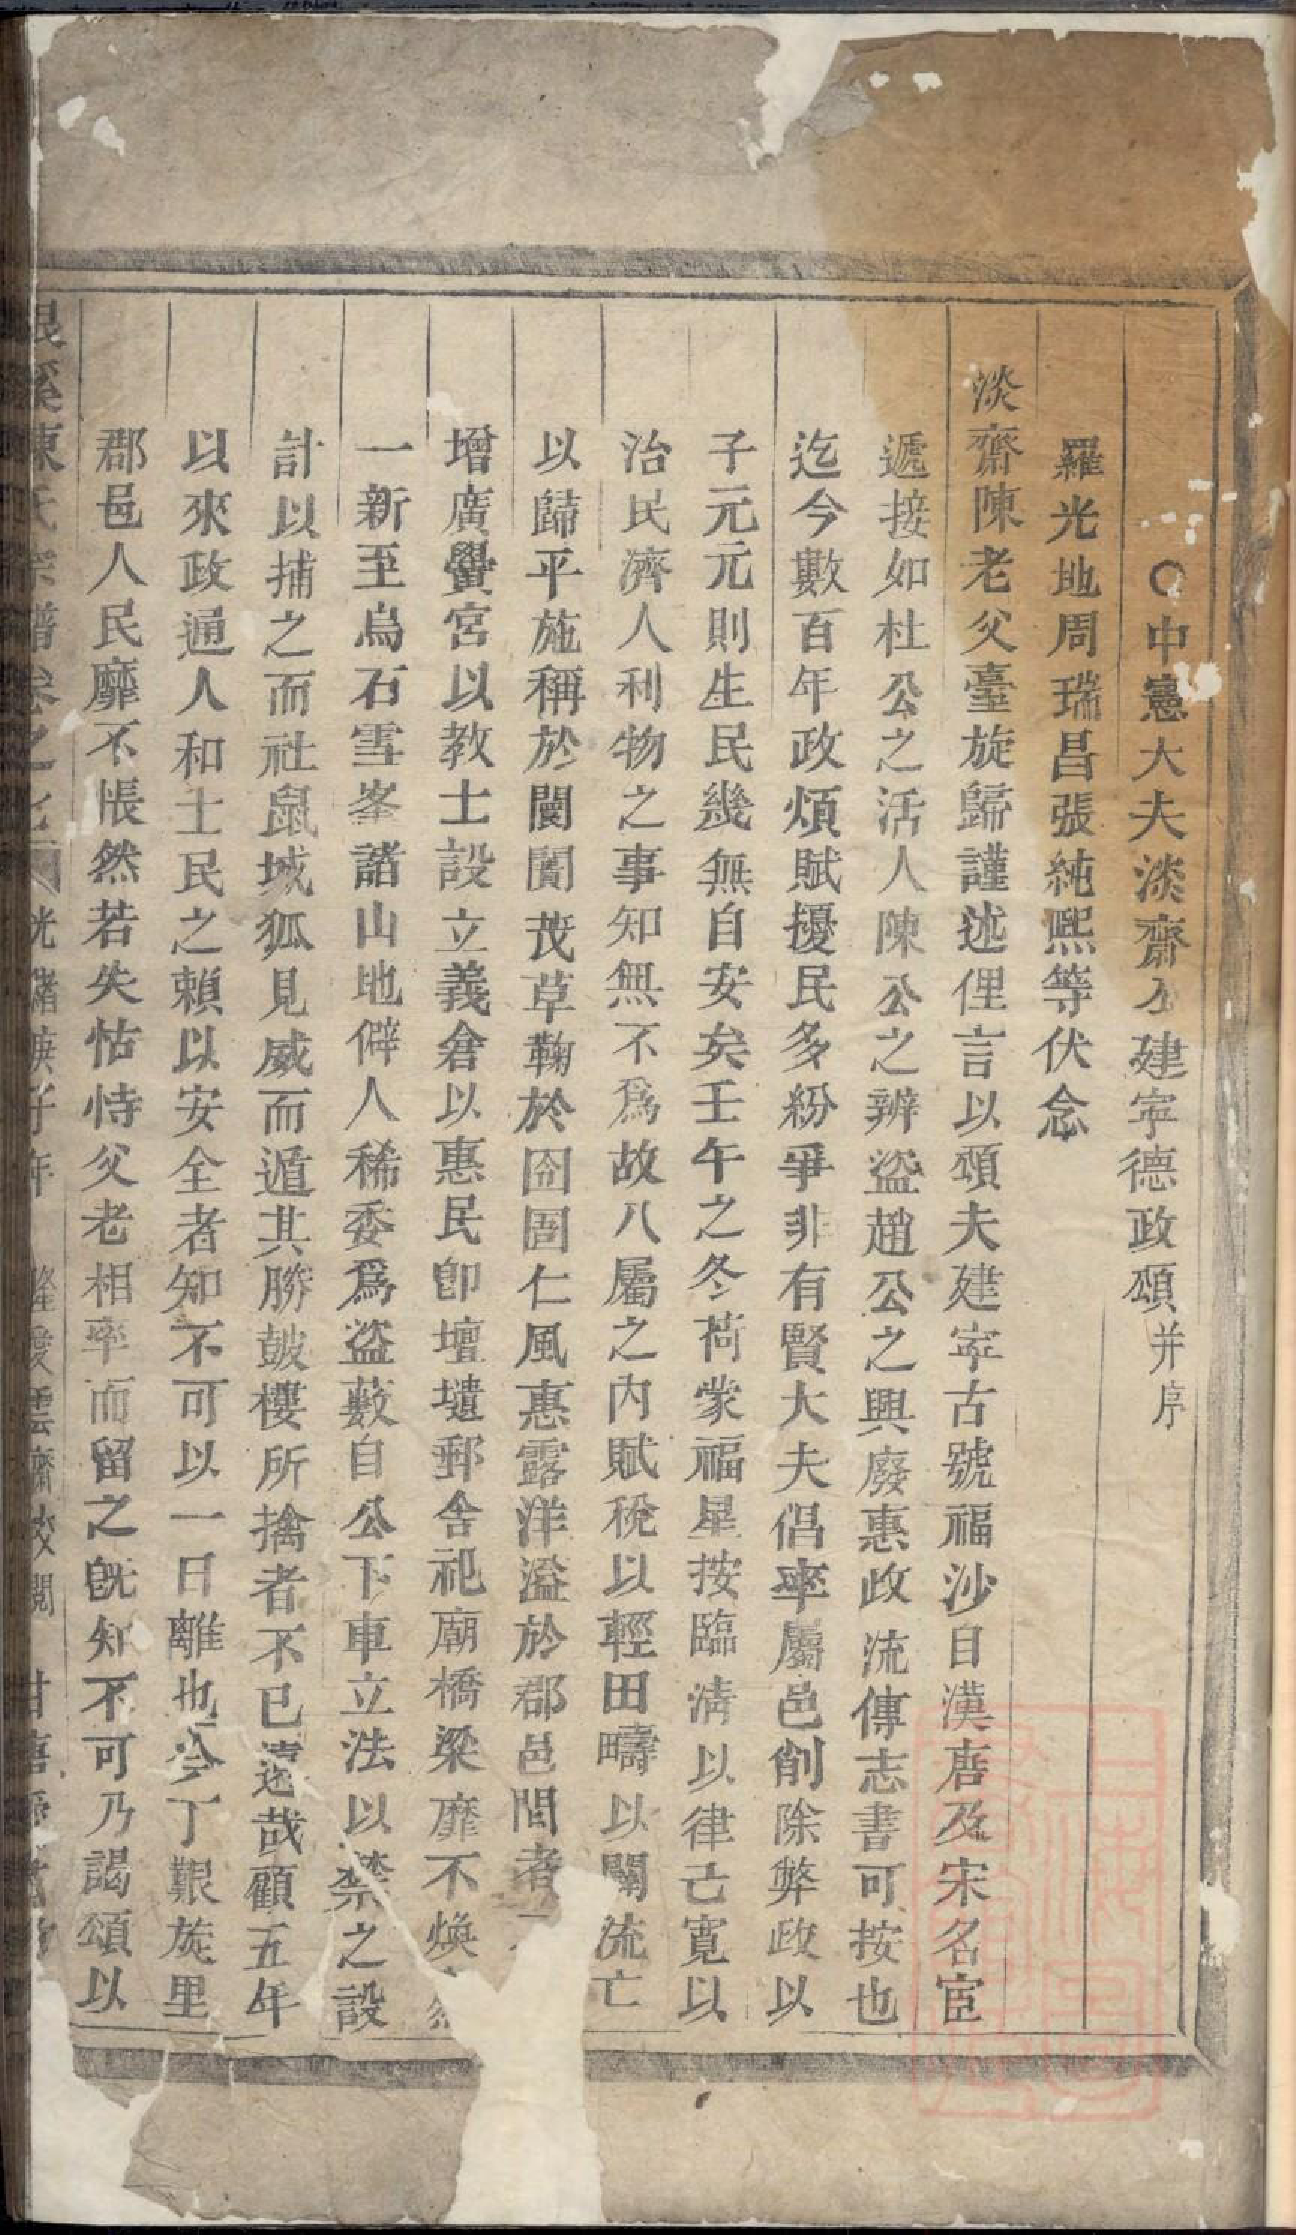 ○中憲大夫淡齋公建寧德政頌并序
羅光地周瑞昌張純熙等伏念
淡齋陳老父臺旋歸謹述俚言以頌夫建寧古號福沙自漢唐及宋名宦
遞接如杜公之活人陳公之辨盜趙公之興廢惠政流傳志書可按也
迄今數百年政煩賦擾民多紛爭非有賢大夫倡率屬邑削除弊政以
子元元則生民幾無自安矣壬午之冬荷蒙福星按臨淸以律己寬以
治民濟人利物之事知無不爲故八屬之内賦稅以輕田疇以闢流亡
以歸平施稱於闤闠茂草鞠於囹圄仁風惠露洋溢於郡邑間者
增廣黌宮以教士設立義倉以惠民卽壇壝郵舍祀廟橋梁靡不煥
一新至烏石雪峯諸山地僻人稀委爲盜藪自公下車立法以禁之設
計以捕之而社鼠城狐見威而遁其勝鼓樓所擒者不已遠哉顧五年
以來政通人和士民之賴以安全者知不可以一日離也今丁艱旋里
郡邑人民靡不悵然若失怙恃父老相率而留之旣知不可乃謁頌以
溪陳氏宗譜卷之七 光緒庚子年